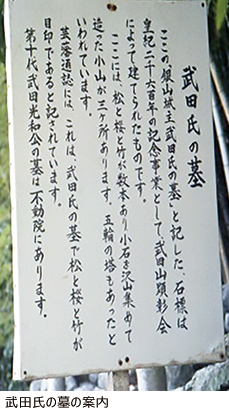 武田氏の墓
ここの、銀山城主武田氏の墓、と記した、石標は
皇紀二千六百年の記念事業として、武田山顕彰会
によって建てられたものです。
ここには、松と桜と竹が数本あり、小石を沢山集めて
造った小山が三ヶ所あります。五輪の塔もあったと
いわれています。
芸藩通志には、これは、武田氏の墓で松と桜と竹が
目印であると記されています。
第十代武田光和公の墓は不動院にあります。
武田氏の墓の案内